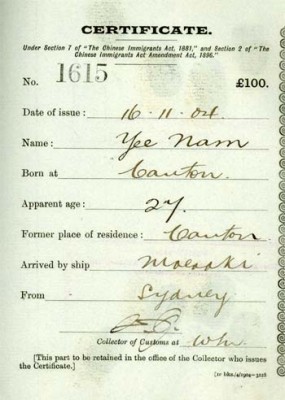 CERTIFICATE.
Under Section 7 of "The Chinese Immigrants Act, 1881," and Section 2 of "The
Chinese Immigrants Act Amendment Act, 1896."
No. 1615 £100.
Date of issue: 16-11-04
Name: Yee Nam
Born at Canton.
Apparent age: 27.
Former place of residence: Canton
Arrived by ship Moeraki
From Sydney
Collector of Customs at
[This part to be retained in the office of the Collector who issues
the Certificate.]